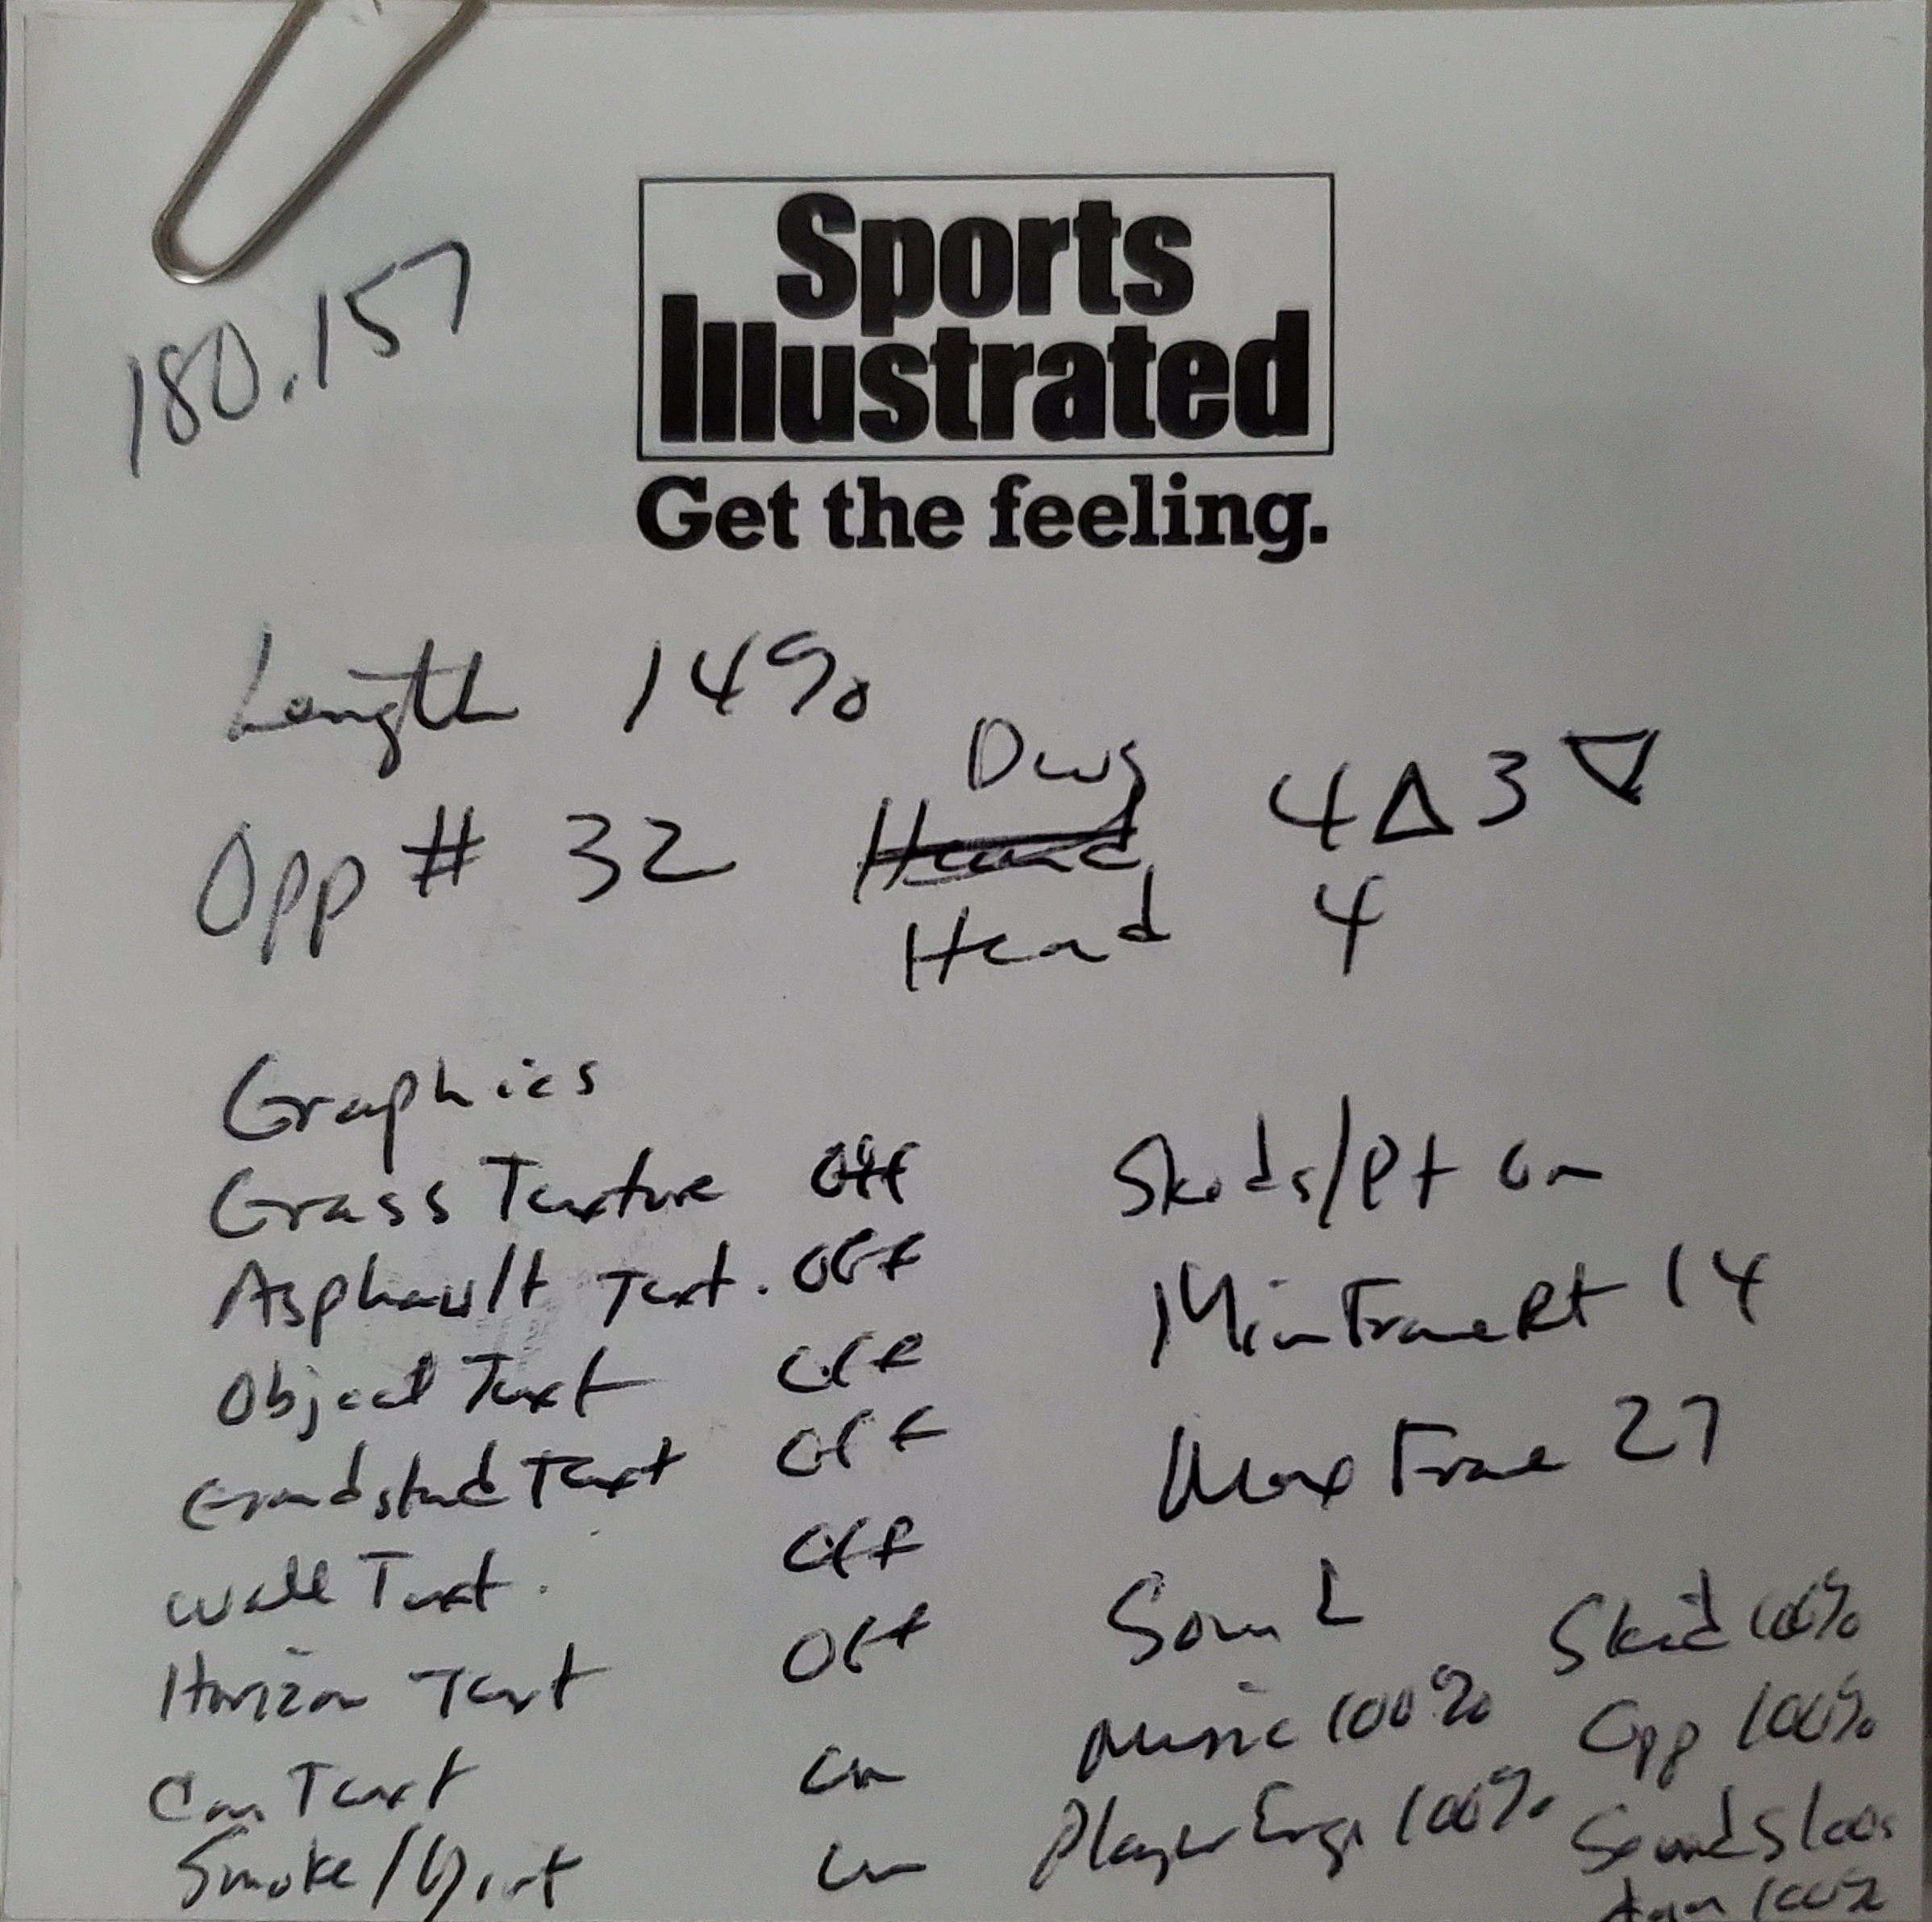 180.157
Sports
Illustrated
Get the feeling.
Length 14%
Opp # 32 Dwg 4 △ 3 ▽
Head 4
Graphics
Grass Texture Off
Asphault Text. Off
Object Text Off
Grandstand Text Off
Wall Text. Off
Horizon Text Off
Car Text on
Smoke/Dirt on
Skids/Pt on
Min Frame Rt 14
Max Frame 27
Sound
Music 100%
Player Eng. 100%
Skid 100%
Opp 100%
Sounds 100%
100%